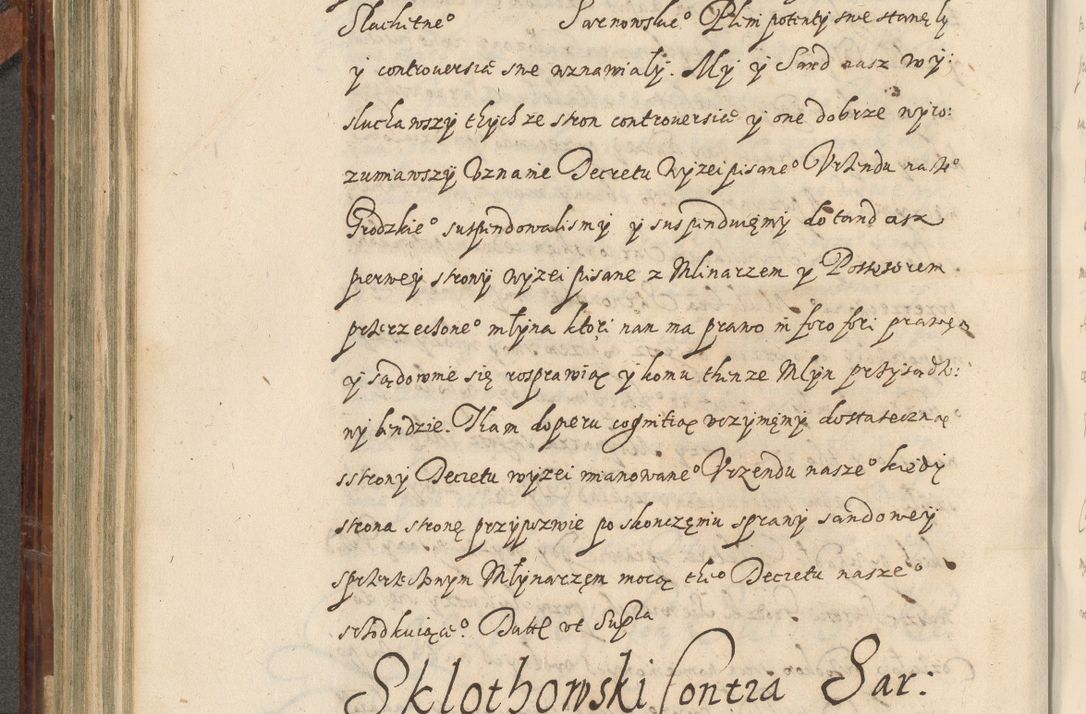 Slachetne° Sarnowskie° Pleni potenty swe stanęły
y controversią swe wznawiały. My y Sand nasz wy:
sluchawszy thych ze stron controversie y one dobrze wyro:
zumiawszy Vznanie Decretu wyzei pisane° Vrzendu nasze°
Grodzkie° suspendowalismy y suspenduięmy do tand asz
pierwey strony wyzei pisane z Mlinarzem y Possesorem
przerzeczone° młyna ktori nan ma prawo in foro fori prawem
y sądownie się rosprawią y komu thenze Mlyn przysądzo:
ny bendzie. Tham dopieru cognitią vczynięmy dostateczną
sstrony Decretu wyzei mianowane° Vrzendu nasze° kiedy
strona stronę przypozwie po skonczęniu sprawy sandowey
sprzerzeczonym Młynarzęm mocą the° Decretu nasze°
schodkuiące°. Datt vt Supra
Sklothowski Contra Sar: